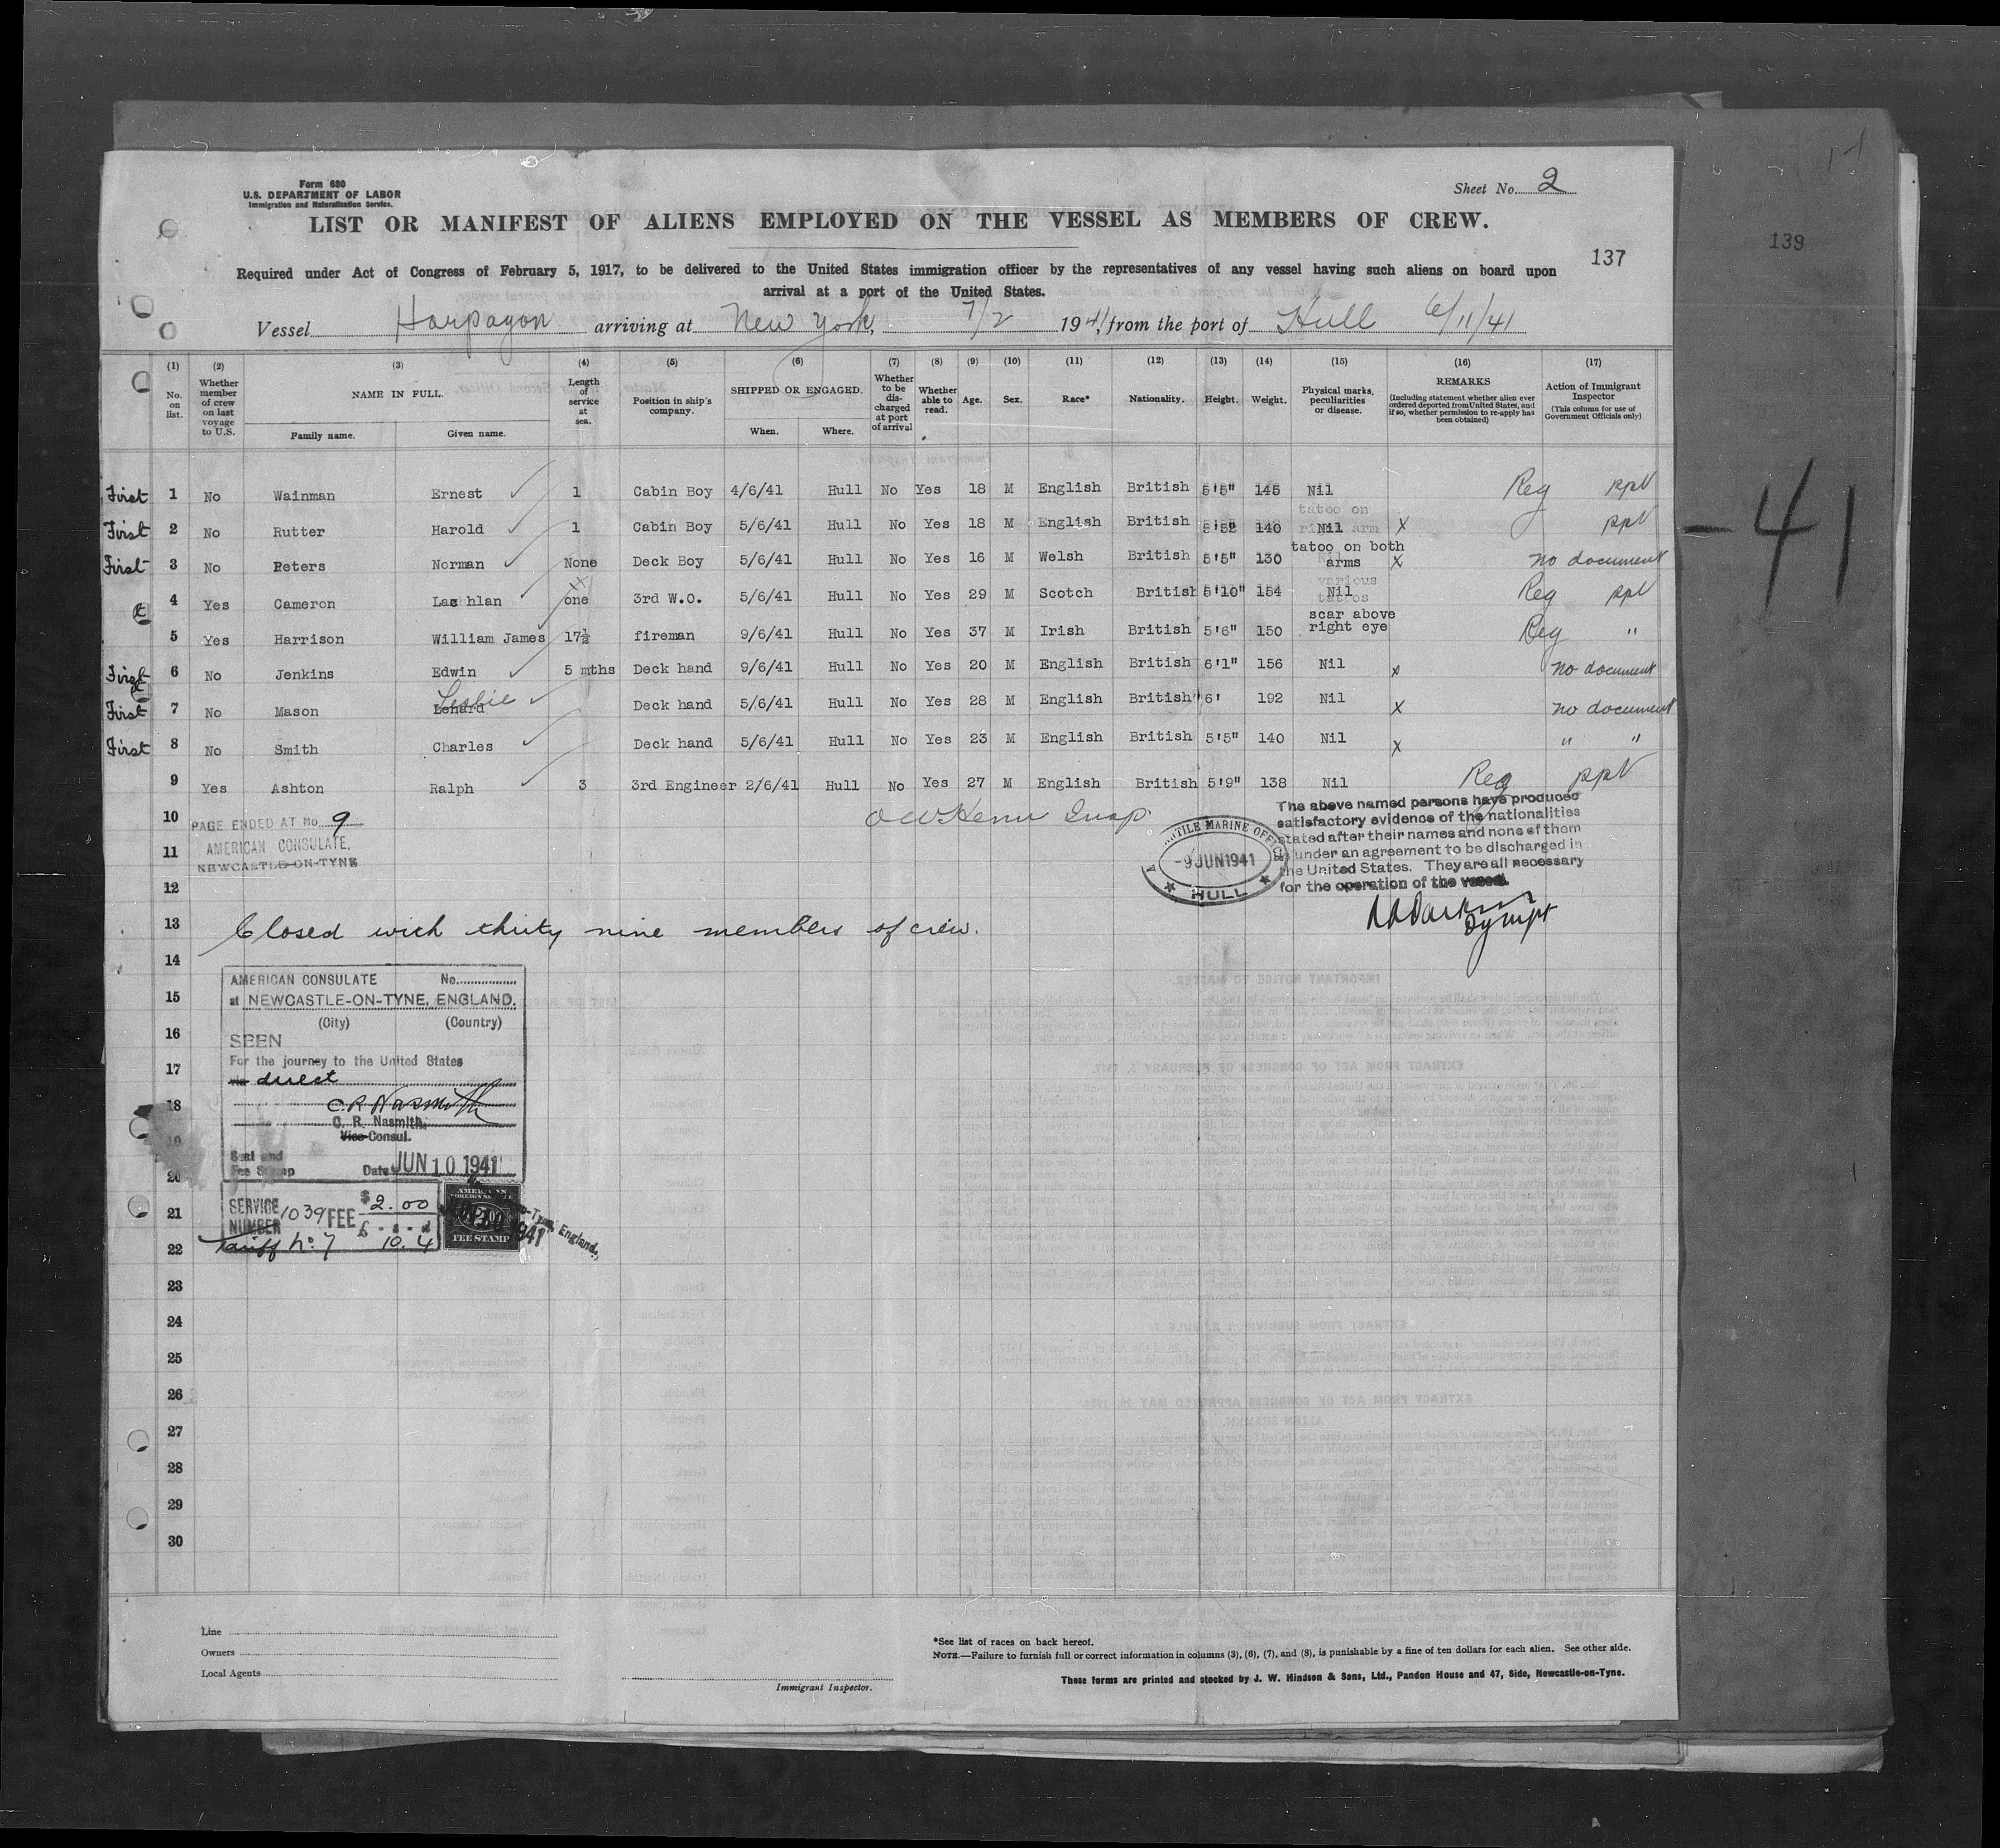 Form 680
U.S. DEPARTMENT OF LABOR
Immigration and Naturalization Service.
Sheet No. 2
LIST OR MANIFEST OF ALIENS EMPLOYED ON THE VESSEL AS MEMBERS OF CREW.
137
139
Required under Act of Congress of February 5, 1917, to be delivered to the United States immigration officer by the representatives of any vessel having such aliens on board upon
arrival at a port of the United States.
Vessel Harpagon arriving at New York, 7/2 1941, from the port of Hull 6/11/41
(1) (2) (3) (4) (5) (6) (7) (8) (9) (10) (11) (12) (13) (14) (15) (16) (17)
No. on list. Whether member of crew on last voyage to U.S. NAME IN FULL. Family name. Given name. Length of service at sea. Position in ship's company. SHIPPED OR ENGAGED. When. Where. Whether to be discharged at port of arrival Whether able to read. Age. Sex. Race* Nationality. Height. Weight. Physical marks, peculiarities or disease. REMARKS (Including statement whether alien ever ordered deported from United States, and if so, whether permission to re-apply has been obtained) Action of Immigrant Inspector (This column for use of Government Officials only)
First 1 No Wainman Ernest 1 Cabin Boy 4/6/41 Hull No Yes 18 M English British 5'5" 145 Nil Reg ppt
First 2 No Rutter Harold 1 Cabin Boy 5/6/41 Hull No Yes 18 M English British 140 tatoo on arm Nil x ppt
First 3 No Peters Norman None Deck Boy 5/6/41 Hull No Yes 16 M Welsh British 5'5" 130 tatoo on both arms x no document
4 Yes Cameron Lachlan one 3rd W.O. 5/6/41 Hull No Yes 29 M Scotch British 5'10" 154 various tatoos Nil Reg ppt
5 Yes Harrison William James 17½ fireman 9/6/41 Hull No Yes 37 M Irish British 5'6" 150 scar above right eye Reg "
First 6 No Jenkins Edwin 5 mths Deck hand 9/6/41 Hull No Yes 20 M English British 6'1" 156 Nil x no document
First 7 No Mason Lenard Leslie Deck hand 5/6/41 Hull No Yes 28 M English British 6' 192 Nil x no document
First 8 No Smith Charles Deck hand 5/6/41 Hull No Yes 23 M English British 5'5" 140 Nil x " "
9 Yes Ashton Ralph 3 3rd Engineer 2/6/41 Hull No Yes 27 M English British 5'9" 138 Nil Reg ppt
10
PAGE ENDED AT No. 9
AMERICAN CONSULATE,
NEWCASTLE-ON-TYNE
The above named persons have produced
satisfactory evidence of the nationalities
stated after their names and none of them
under an agreement to be discharged in
the United States. They are all necessary
for the operation of the vessel.
MARINE OFFICE
-9 JUN 1941
HULL
11
12
13 Closed with thirty nine members of crew.
14
AMERICAN CONSULATE No.
at NEWCASTLE-ON-TYNE, ENGLAND.
15
(City) (Country)
16
SEEN
For the journey to the United States
17
via direct
C. R. Nasmith
18
C. R. Nasmith,
Vice Consul.
19
Seal and
Fee Stamp Date JUN 10 1941
20
SERVICE NUMBER 1039 FEE $2.00
21
£ - s - d
Tariff No. 7 10.4
AMERICAN
FOREIGN SERVICE
FEE STAMP
England.
22
23
24
25
26
27
28
29
30
-41
Line
Owners
Local Agents
Immigrant Inspector.
*See list of races on back hereof.
NOTE.—Failure to furnish full or correct information in columns (3), (6), (7), and (8), is punishable by a fine of ten dollars for each alien. See other side.
These forms are printed and stocked by J. W. Hindson & Sons, Ltd., Pandon House and 47, Side, Newcastle-on-Tyne.